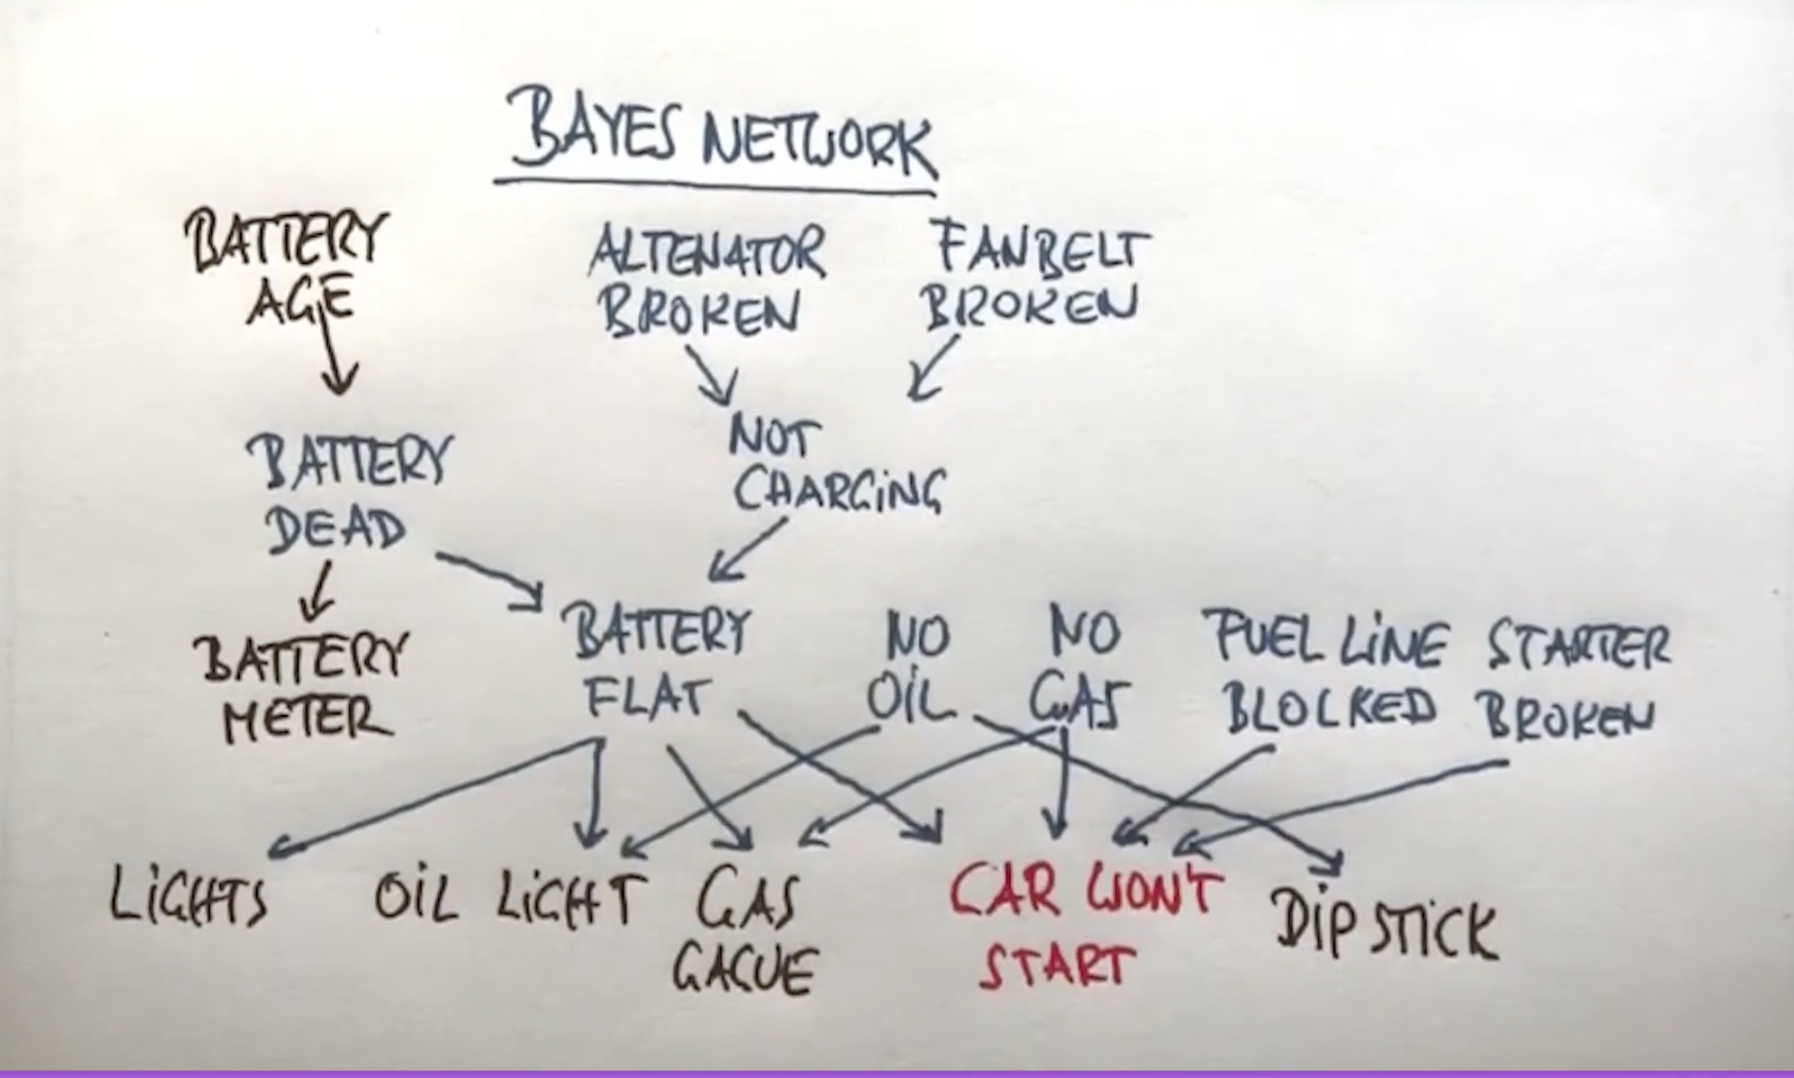 BAYES NETWORK
BATTERY
AGE
ALTENATOR
BROKEN
FANBELT
BROKEN
BATTERY
DEAD
NOT
CHARGiNG
BATTERY
METER
BATTERY
FLAT
NO
OiL
NO
GAS
FUEL LiNE
BLOCKED
STARTER
BROKEN
LiGHTS
OiL LiGHT
GAS
GAGUE
CAR WON'T
START
DiP STiCK